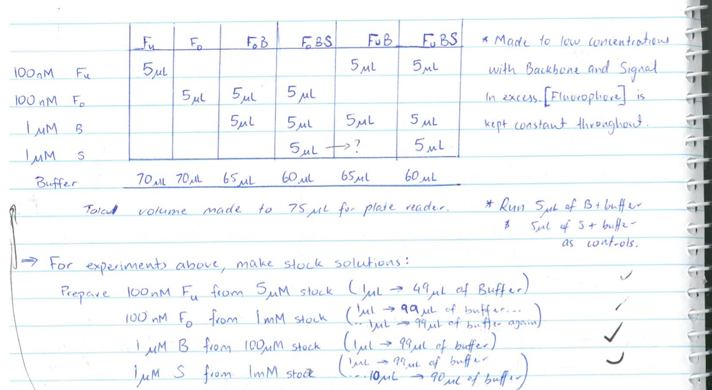 Fu Fo FoB FoBS FuB FuBS
100nM Fu 5µL 5µL 5µL
100nM Fo 5µL 5µL 5µL
1µM B 5µL 5µL 5µL 5µL
1µM S 5µL →? 5µL
Buffer 70µL 70µL 65µL 60µL 65µL 60µL
Total volume made to 75µL for plate reader.
* Made to low concentrations
with Backbone and Signal
in excess. [Fluorophore] is
kept constant throughout.
* Run 5µL of B + buffer
& 5µL of S + buffer
as controls.
→ For experiments above, make stock solutions:
Prepare 100nM Fu from 5µM stock (1µL → 49µL of Buffer)
100nM Fo from 1mM stock (1µL → 99µL of buffer...
...1µL → 99µL of buffer again)
1µM B from 100µM stock (1µL → 99µL of buffer)
1µM S from 1mM stock (1µL → 99µL of buffer
...10µL → 90µL of buffer)